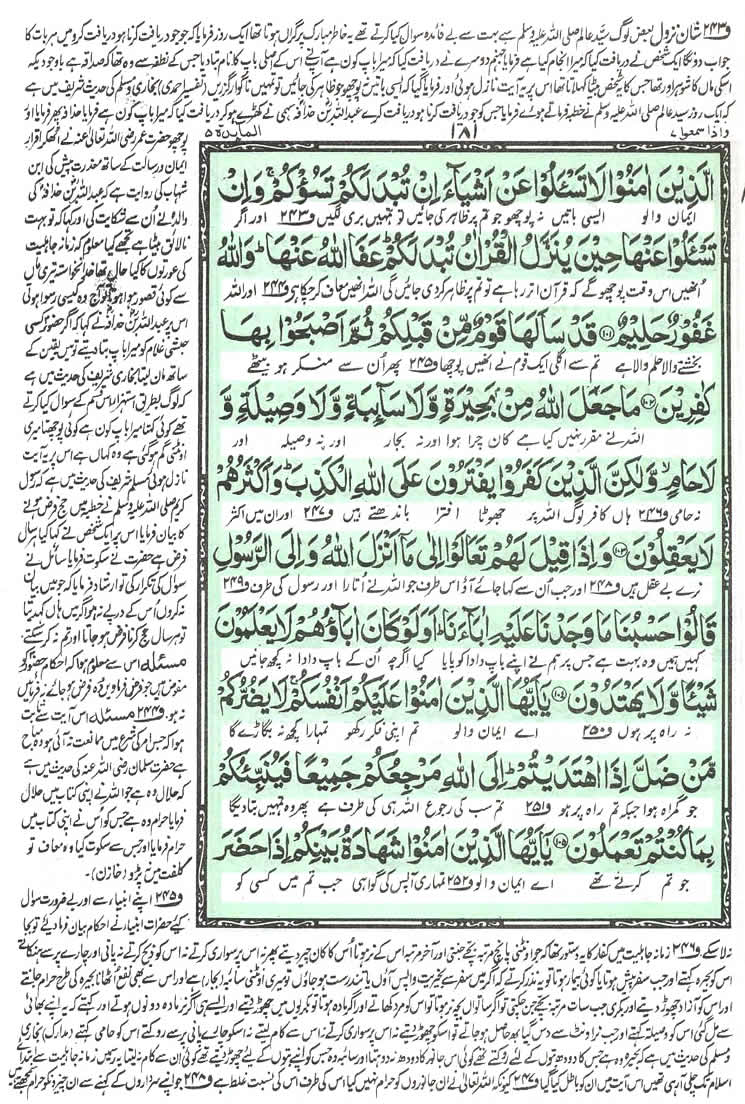 و۲۴۳ شان نزول بعض لوگ سیّد عالم صلی اللہ علیہ وسلم سے بہت سے بے فائدہ سوال کیا کرتے تھے یہ خاطر مبارک پر گراں ہوتا تھا ایک روز فرمایا کہ جو جو دریافت کرنا ہو دریافت کرو میں ہر بات کا
جواب دونگا ایک شخص نے دریافت کیا کہ میرا انجام کیا ہے فرمایا جہنم دوسرے نے دریافت کیا کہ میرا باپ کون ہے آپنے اس کے اصلی باپ کا نام بتا دیا جس کے نطفہ سے وہ تھا کہ صداقہ ہے باوجودیکہ
اسکی ماں کا شوہر اور تھا جس کا یہ شخص بیٹا کہلاتا تھا اس پر یہ آیت نازل ہوئی اور فرمایا گیا کہ ایسی باتیں نہ پوچھو جو ظاہر کی جائیں تو تمہیں ناگوار گزریں (تفسیر احمدی) بخاری و مسلم کی حدیث شریف میں ہے
کہ ایک روز سید عالم صلی اللہ علیہ وسلم نے خطبہ فرماتے ہوئے فرمایا جس کو جو دریافت کرنا ہو دریافت کرے عبداللہ بن حذافہ سہمی نے کھڑے ہو کر دریافت کیا کہ میرا باپ کون ہے فرمایا حذافہ پھر فرمایا اور
واذا سمعوا ۷
۱۸۱
المآىدۃ ۵
الَّذِيْنَ اٰمَنُوْا لَا تَسْـَٔلُوْا عَنْ اَشْيَآءَ اِنْ تُبْدَ لَكُمْ تَسُؤْكُمْ ۚ وَاِنْ
ایمان والو ایسی باتیں نہ پوچھو جو تم پر ظاہر کی جائیں تو تمہیں بری لگیں و۲۴۳ اور اگر
تَسْـَٔلُوْا عَنْهَا حِيْنَ يُنَزَّلُ الْقُرْاٰنُ تُبْدَ لَكُمْ ؕ عَفَا اللّٰهُ عَنْهَا ؕ وَاللّٰهُ
اُنھیں اس وقت پوچھو گے کہ قرآن اتر رہا ہے تو تم پر ظاہر کردی جائیں گی اللہ انھیں معاف کر چکا ہے و۲۴۴ اور اللہ
غَفُوْرٌ حَلِيْمٌ ۱۰۱ قَدْ سَاَلَهَا قَوْمٌ مِّنْ قَبْلِكُمْ ثُمَّ اَصْبَحُوْا بِهَا
بخشنے والا حلم والا ہے تم سے اگلی ایک قوم نے انھیں پوچھا و۲۴۵ پھر اُن سے منکر ہو بیٹھے
كٰفِرِيْنَ ۱۰۲ مَا جَعَلَ اللّٰهُ مِنْۢ بَحِيْرَةٍ وَّلَا سَآىِٕبَةٍ وَّلَا وَصِيْلَةٍ وَّ
اللہ نے مقرر نہیں کیا ہے کان چرا ہوا اور نہ بجار اور نہ وصیلہ اور
لَا حَامٍ ۙ وَّلٰكِنَّ الَّذِيْنَ كَفَرُوْا يَفْتَرُوْنَ عَلَى اللّٰهِ الْكَذِبَ ؕ وَاَكْثَرُهُمْ
نہ حامی و۲۴۶ ہاں کافر لوگ اللہ پر جھوٹا افترا باندھتے ہیں و۲۴۷ اور ان میں اکثر
لَا يَعْقِلُوْنَ ۱۰۳ وَاِذَا قِيْلَ لَهُمْ تَعَالَوْا اِلٰى مَآ اَنْزَلَ اللّٰهُ وَاِلَى الرَّسُوْلِ
نرے بے عقل ہیں و۲۴۸ اور جب اُن سے کہا جائے آؤ اس طرف جو اللہ نے اُتارا اور رسول کی طرف و۲۴۹
قَالُوْا حَسْبُنَا مَا وَجَدْنَا عَلَيْهِ اٰبَآءَنَا ؕ اَوَلَوْ كَانَ اٰبَآؤُهُمْ لَا يَعْلَمُوْنَ
کہیں ہمیں وہ بہت ہے جس پر ہم نے اپنے باپ دادا کو پایا کیا اگرچہ اُن کے باپ دادا نہ کچھ جانیں
شَيْـًٔا وَّلَا يَهْتَدُوْنَ ۱۰۴ يٰٓاَيُّهَا الَّذِيْنَ اٰمَنُوْا عَلَيْكُمْ اَنْفُسَكُمْ ۚ لَا يَضُرُّكُمْ
نہ راہ پر ہوں و۲۵۰ اے ایمان والو تم اپنی فکر رکھو تمہارا کچھ نہ بگاڑے گا
مَّنْ ضَلَّ اِذَا اهْتَدَيْتُمْ ؕ اِلَى اللّٰهِ مَرْجِعُكُمْ جَمِيْعًا فَيُنَبِّئُكُمْ
جو گمراہ ہوا جبکہ تم راہ پر ہو و۲۵۱ تم سب کی رجوع اللہ ہی کی طرف ہے پھر وہ تمہیں بتا دیگا
بِمَا كُنْتُمْ تَعْمَلُوْنَ ۱۰۵ يٰٓاَيُّهَا الَّذِيْنَ اٰمَنُوْا شَهَادَةُ بَيْنِكُمْ اِذَا حَضَرَ
جو تم کرتے تھے اے ایمان والو و۲۵۲ تمہاری آپس کی گواہی جب تم میں کسی کو
پوچھو حضرت عمر رضی اللہ تعالیٰ عنہ نے اٹھکر اقرار
ایمان و رسالت کے ساتھ معذرت پیش کی ابن
شہاب کی روایت ہے کہ عبداللہ بن حذافہ کی
والدہ نے اُن سے شکایت کی اور کہا کہ تو بہت
نالائق بیٹا ہے تجھے کیا معلوم کہ زمانہ جاہلیت
کی عورتوں کا کیا حال تھا خدانخواستہ تیری ماں
سے کوئی قصور ہوا ہوتا تو آج وہ کیسی رسوا ہوتی
اس پر عبداللہ بن حذافہ نے کہا کہ اگر حضور کسی
حبشی غلام کو میرا باپ بتا دیتے تو میں یقین کے
ساتھ مان لیتا بخاری شریف کی حدیث میں ہے
کہ لوگ بطریق استہزاء اس قسم کے سوال کیا کرتے
تھے کوئی کہتا میرا باپ کون ہے کوئی پوچھتا میری
اونٹنی گم ہو گئی ہے وہ کہاں ہے اس پر یہ آیت
نازل ہوئی مسلم شریف کی حدیث میں ہے کہ رسول
کریم صلی اللہ علیہ وسلم نے خطبہ میں حج فرض ہونے
کا بیان فرمایا اس پر ایک شخص نے کہا کیا ہر سال
فرض ہے حضرت نے سکوت فرمایا سائل نے
سوال کی تکرار کی تو ارشاد فرمایا کہ جو میں بیان
نہ کروں اُس کے درپے نہ ہو اگر میں ہاں کہدیتا
تو ہر سال حج کرنا فرض ہو جاتا اور تم نہ کر سکتے،
مسئلہ اس سے معلوم ہوا کہ احکام حضور کو
مفوض ہیں جو فرض فرما دیں وہ فرض ہو جائے نہ فرمائیں
نہ ہو۔ و۲۴۴ مسئلہ اس آیت سے ثابت
ہوا کہ جس امر کی شرع میں ممانعت نہ آئی ہو وہ مباح
ہے حضرت سلمان رضی اللہ عنہ کی حدیث میں ہے
کہ حلال وہ ہے جو اللہ نے اپنی کتاب میں حلال
فرمایا حرام وہ ہے جس کو اس نے اپنی کتاب میں
حرام فرمایا اور جس سے سکوت کیا وہ معاف تو
کلفت میں نہ پڑو (خازن)۔
و۲۴۵ اپنے انبیاء سے اور بے ضرورت سوال
کیے حضرات انبیاء نے احکام بیان فرما دیے تو بجا
نہ لا سکے و۲۴۶ زمانہ جاہلیت میں کفار کا یہ دستور تھا کہ جو اونٹنی پانچ مرتبہ بچے جنتی اور آخر مرتبہ اس کے نر ہوتا اُس کا کان چیر دیتے پھر نہ اس پر سواری کرتے نہ اس کو ذبح کرتے نہ پانی اور چارے پر سے ہنکاتے
اس کو بحیرہ کہتے اور جب سفر پیش ہوتا یا کوئی بیمار ہوتا تو یہ نذر کرتے کہ اگر میں سفر سے بخیریت واپس آؤں یا تندرست ہو جاؤں تو میری اونٹنی سائبہ (بجار) ہے اور اس سے بھی نفع اٹھانا بحیرہ کی طرح حرام جانتے
اور اس کو آزاد چھوڑ دیتے اور بکری جب سات مرتبہ بچے جن چکتی تو اگر ساتواں بچہ نر ہوتا تو اس کو مرد کھاتے اور اگر مادہ ہوتا تو بکریوں میں چھوڑ دیتے اور ایسے ہی اگر نر مادہ دونوں ہوتے اور کہتے کہ یہ اپنے بھائی
سے مل گئی اس کو وصیلہ کہتے اور جب نر اونٹ سے دس گیابھ حاصل ہو جاتے تو اسکو چھوڑ دیتے نہ اس پر سواری کرتے نہ اس سے کام لیتے نہ اسکو چارے پانی پر سے روکتے اس کو حامی کہتے (مدارک) بخاری
و مسلم کی حدیث میں ہے کہ بحیرہ وہ ہے جس کا دودھ بتوں کے لئے روکتے تھے کوئی اس جانور کا دودھ نہ دوہتا اور سائبہ وہ جس کو اپنے بتوں کے لئے چھوڑ دیتے تھے کوئی ان سے کام نہ لیتا یہ رسمیں زمانہ جاہلیت سے ابتدائے
اسلام تک چلی آ رہی تھیں اس آیت میں ان کو باطل کیا گیا و۲۴۷ کیونکہ اللہ تعالیٰ نے ان جانوروں کو حرام نہیں کیا اس کی طرف اس کی نسبت غلط ہے و۲۴۸ جو اپنے سرداروں کے کہنے سے ان چیزوں کو حرام سمجھتے ہیں